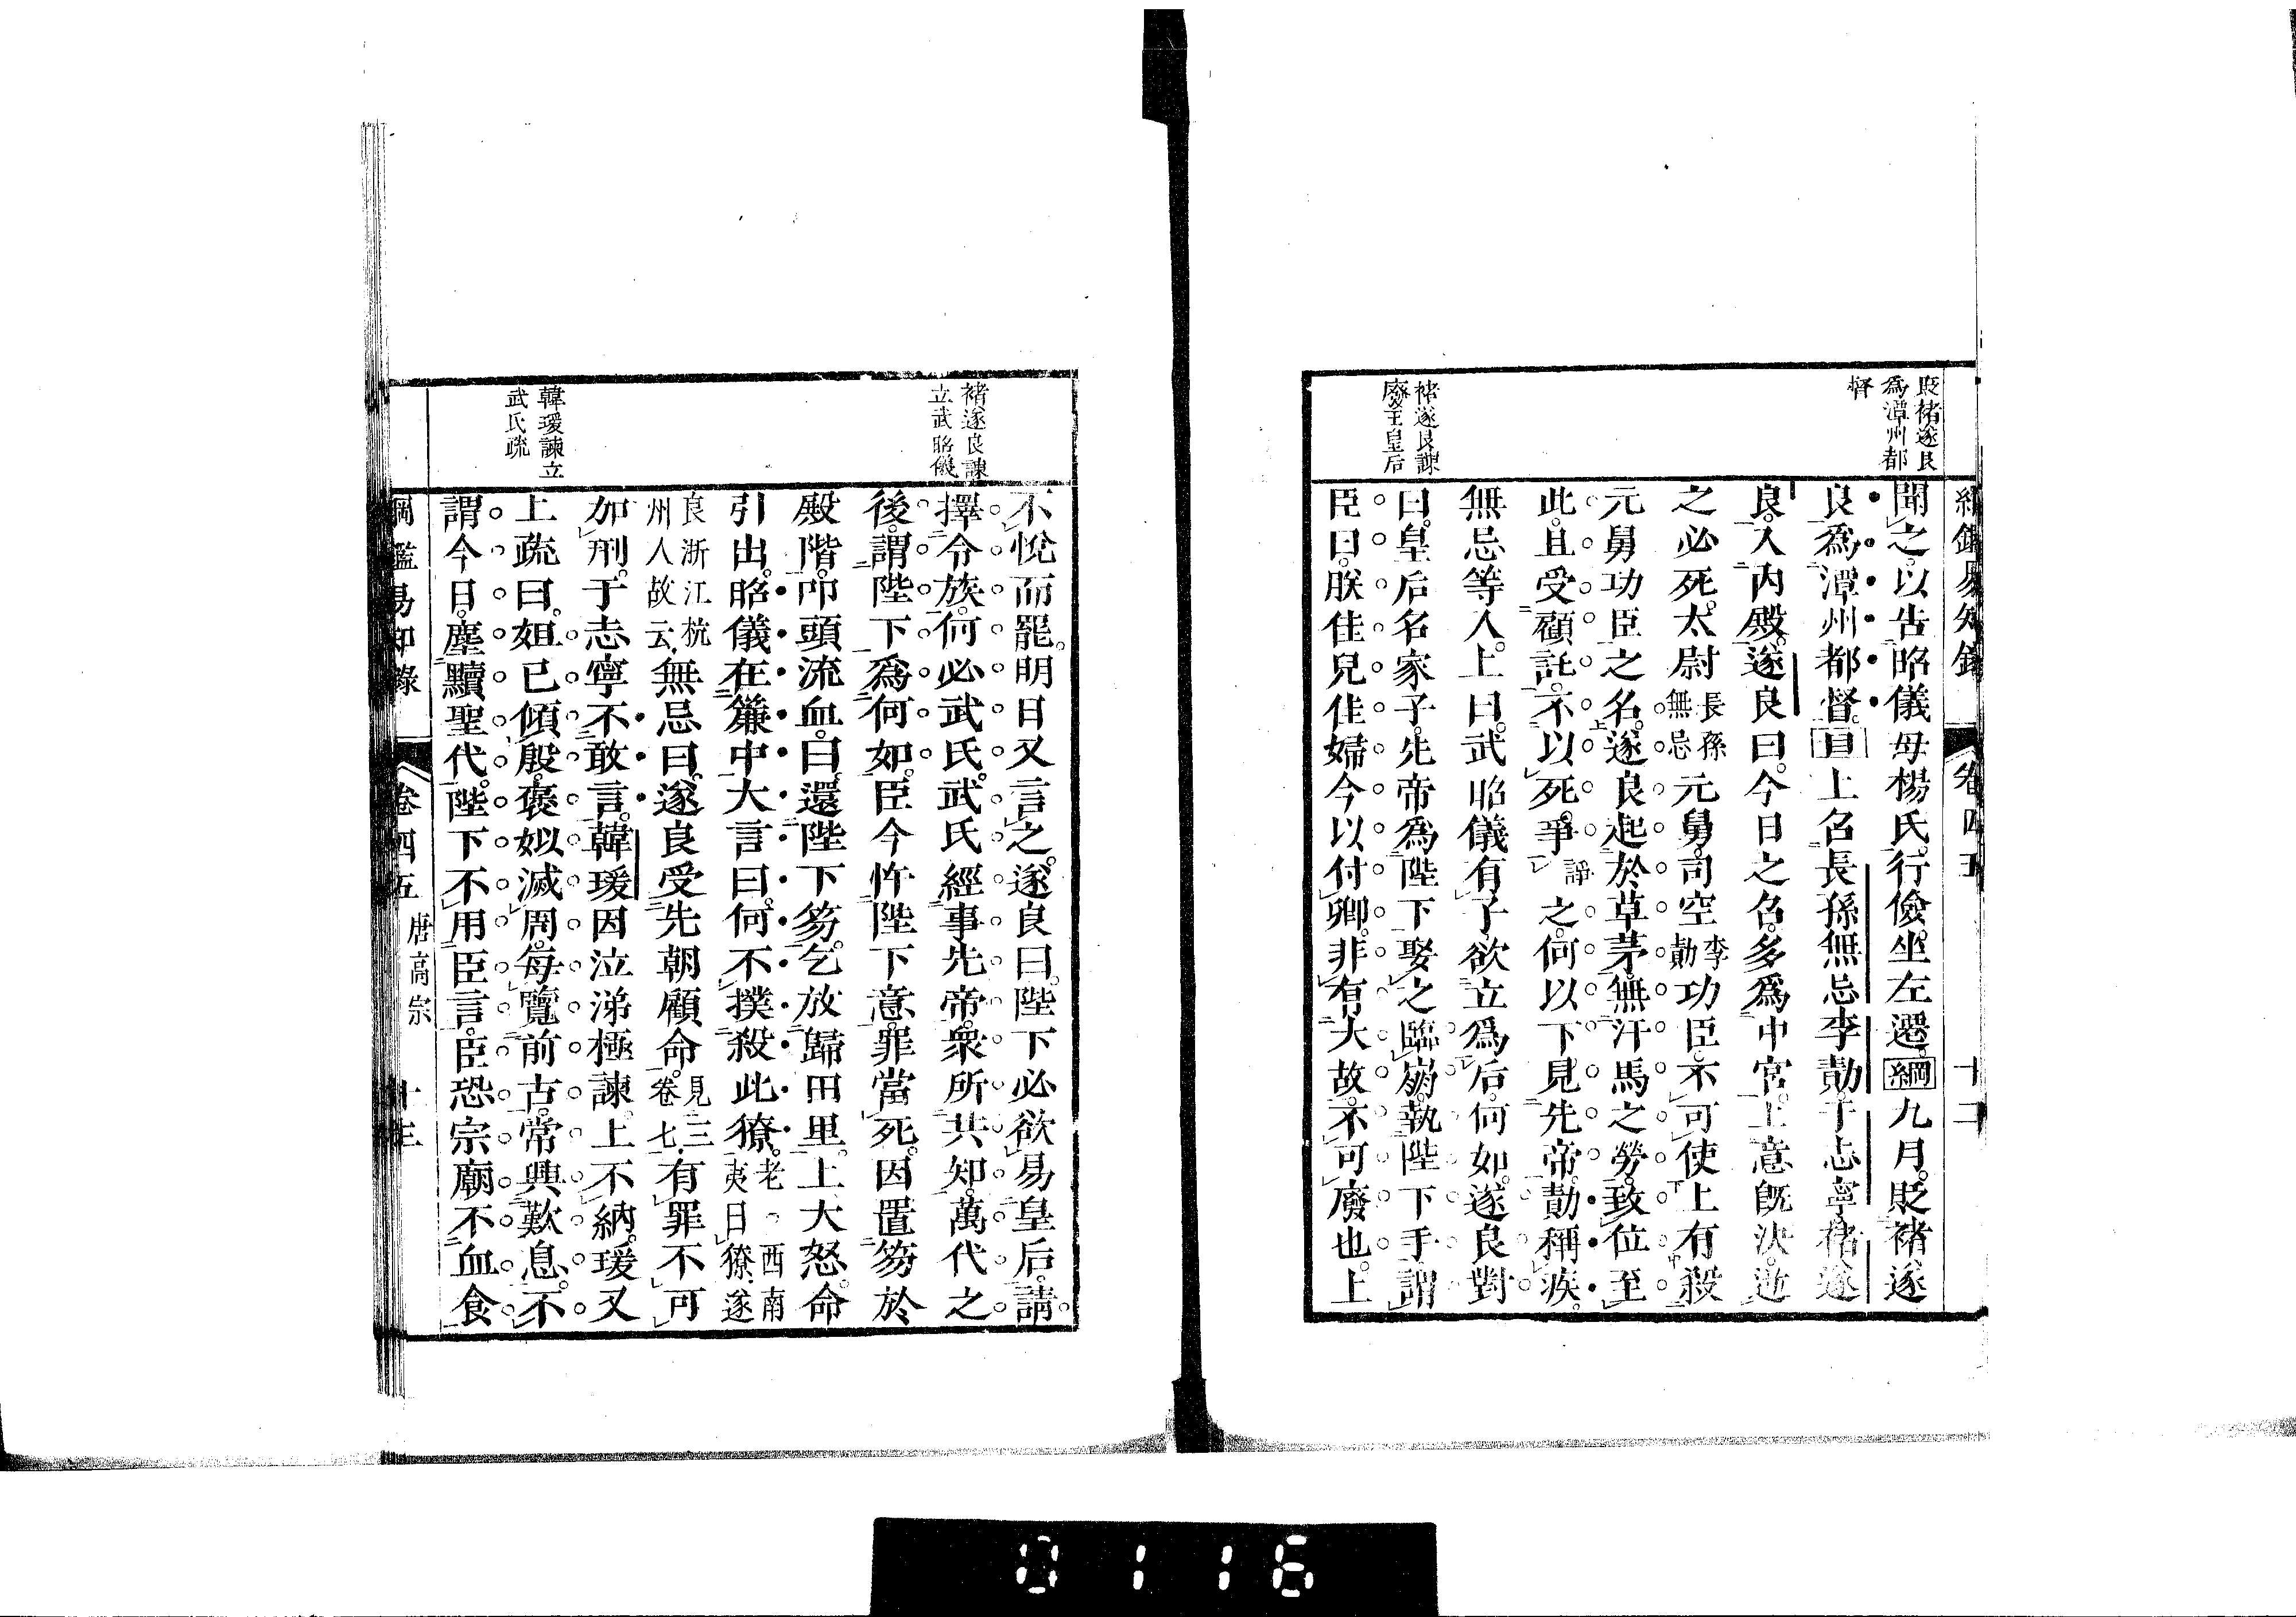 綱鑑易知錄 卷四五 十二
貶褚遂良
爲潭州都
督
褚遂良諫
廢王皇后
聞之以告昭儀母楊氏行儉坐左遷綱九月貶褚遂
良爲潭州都督目上召長孫無忌李勣于志寧褚遂
良入內殿遂良曰今日之召多爲中宮上意旣決逆
之必死太尉長孫無忌元舅司空李勣功臣不可使上有殺
元舅功臣之名遂良起於草茅無汗馬之勞致位至
此且受顧託不以死爭諍之何以下見先帝勣稱疾
無忌等入上曰武昭儀有子欲立爲后何如遂良對
曰皇后名家子先帝爲陛下娶之臨崩執陛下手謂
臣曰朕佳兒佳婦今以付卿非有大故不可廢也上
褚遂良諫
立武昭儀
韓瑗諫立
武氏疏
不悅而罷明日又言之遂良曰陛下必欲易皇后請
擇令族何必武氏武氏經事先帝衆所共知萬代之
後謂陛下爲何如臣今忤陛下意罪當死因置笏於
殿階叩頭流血曰還陛下笏乞放歸田里上大怒命
引出昭儀在簾中大言曰何不撲殺此獠老○西南夷曰獠遂
良浙江杭州人故云無忌曰遂良受先朝顧命見三卷七有罪不可
加刑于志寧不敢言韓瑗因泣涕極諫上不納瑗又
上疏曰妲己傾殷褒姒滅周每覽前古常興歎息不
謂今日塵黷聖代陛下不用臣言臣恐宗廟不血食
綱鑑易知錄 卷四五 唐高宗 十三
0116